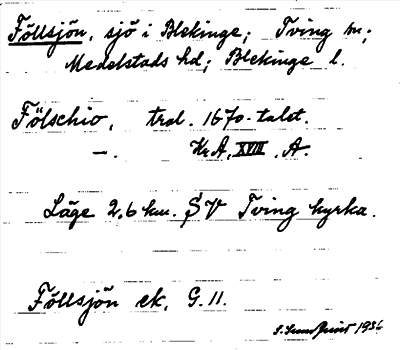 Föllsjön, sjö i Blekinge; Tving sn;
Medelstads hd; Blekinge l.
Fölschio, trol. 1670-talet.
—. KrA, XVIII, A.
Läge 2,6 km. SV Tving kyrka.
Föllsjön ek. G. 11.
1936